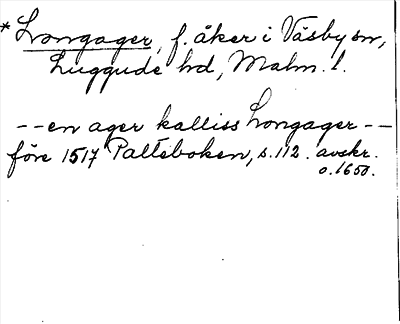 *Longager, f. åker i Väsby sn,
Luggude hd, Malm. l.
-- en ager kalliss Longager --
före 1517 Palteboken, s. 112. avskr.
o. 1650.